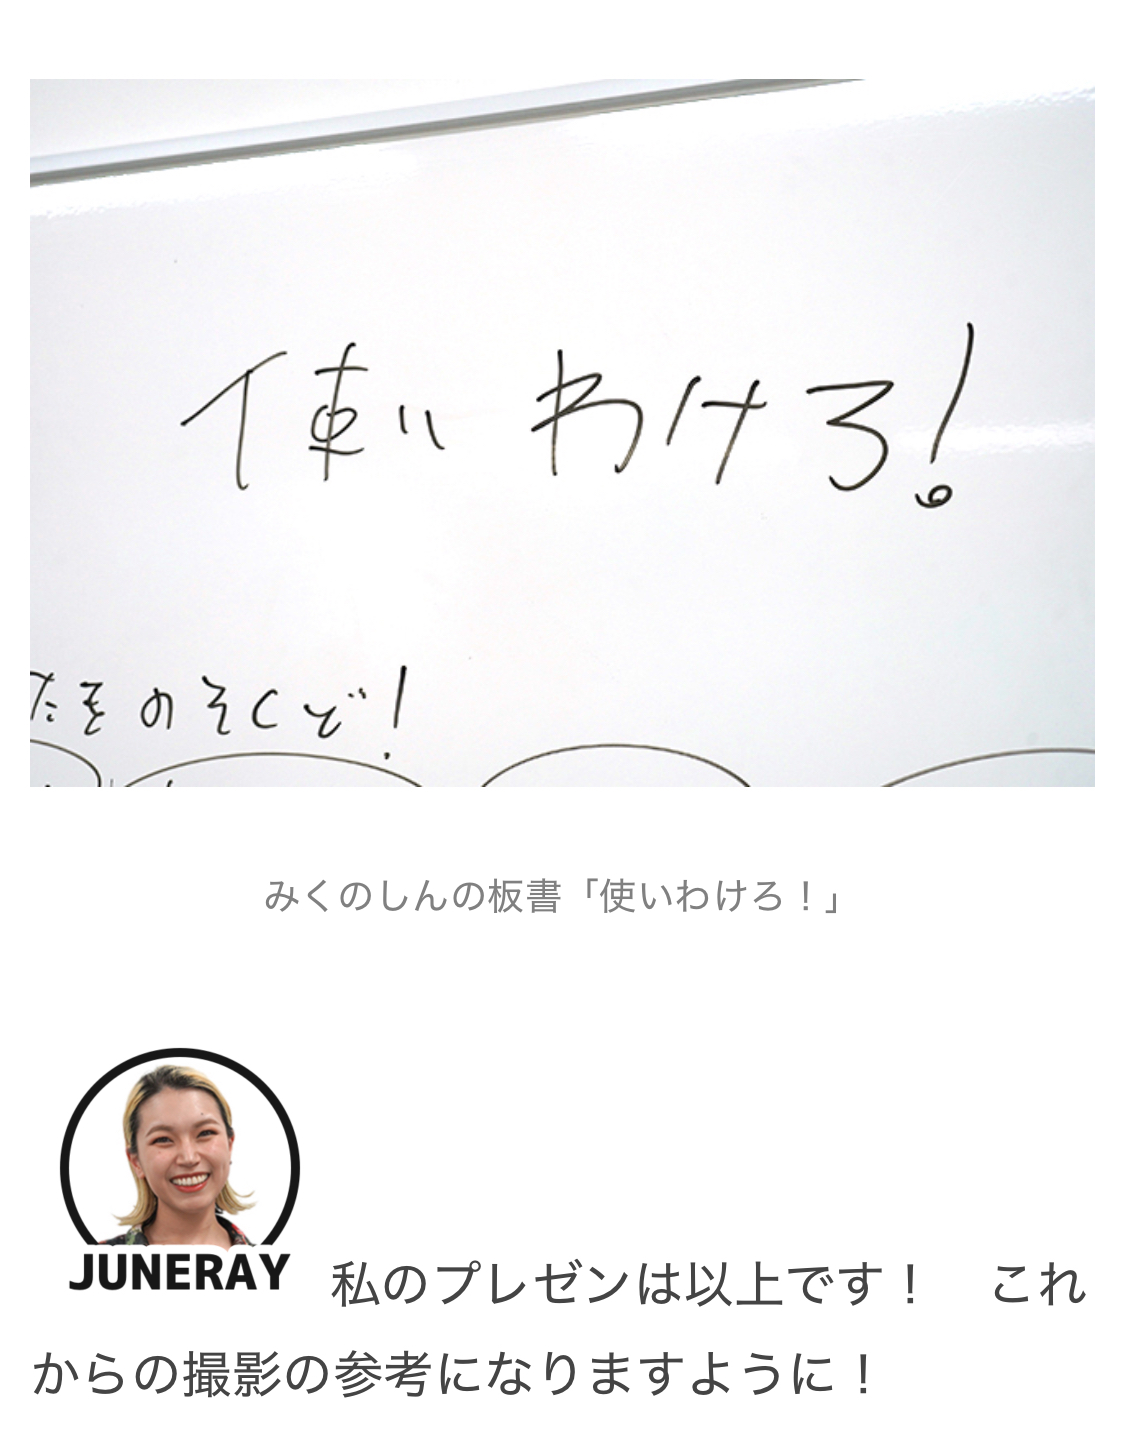 使いわけろ!
たきのそくど!
みくのしんの板書「使いわけろ！」
JUNERAY
私のプレゼンは以上です！　これ
からの撮影の参考になりますように！